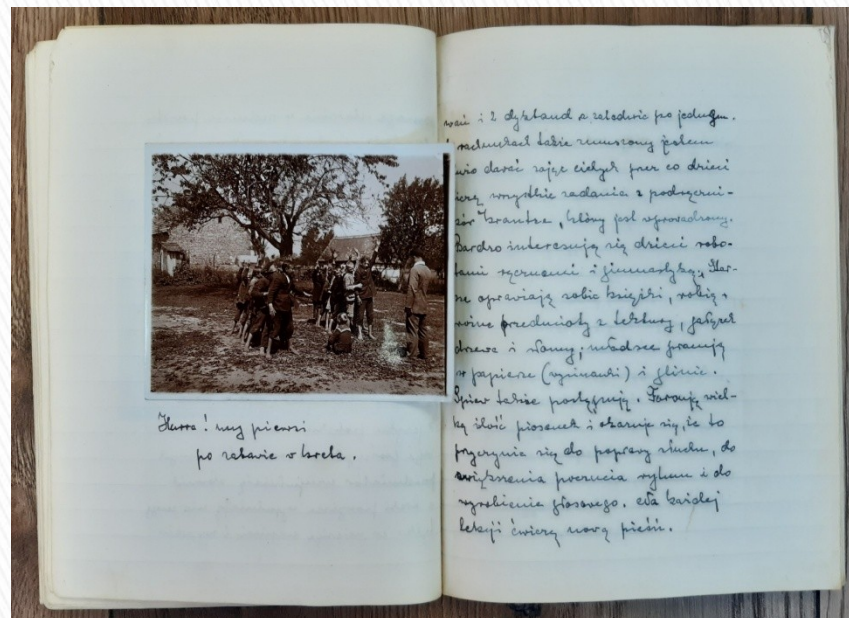 Hurra! my pierwsi
po zabawie w kreta.
i 2 dyktand a zaledwie po jednym.
rachunkach także zmuszony jestem
dawać zajęć cichych przez co dzieci
wszystkie zadania z podręczni-
Krantza, który jest wprowadzony.
Bardzo interesują się dzieci robo-
tami ręcznemi i gimnastyką. Star-
sze oprawiają sobie książki, robią
przedmioty z tektury, gałązek
drzewa i słomy, młodsze pracują
w papierze (wycinanki) i glinie.
Śpiew także postępują. Poznają wiel-
ką ilość piosenek i okazuje się, że to
przyczynia się do poprawy słuchu, do
zwiększenia poczucia rytmu i do
wyrobienia głosowego. Na każdej
lekcji ćwiczą nową pieśń.